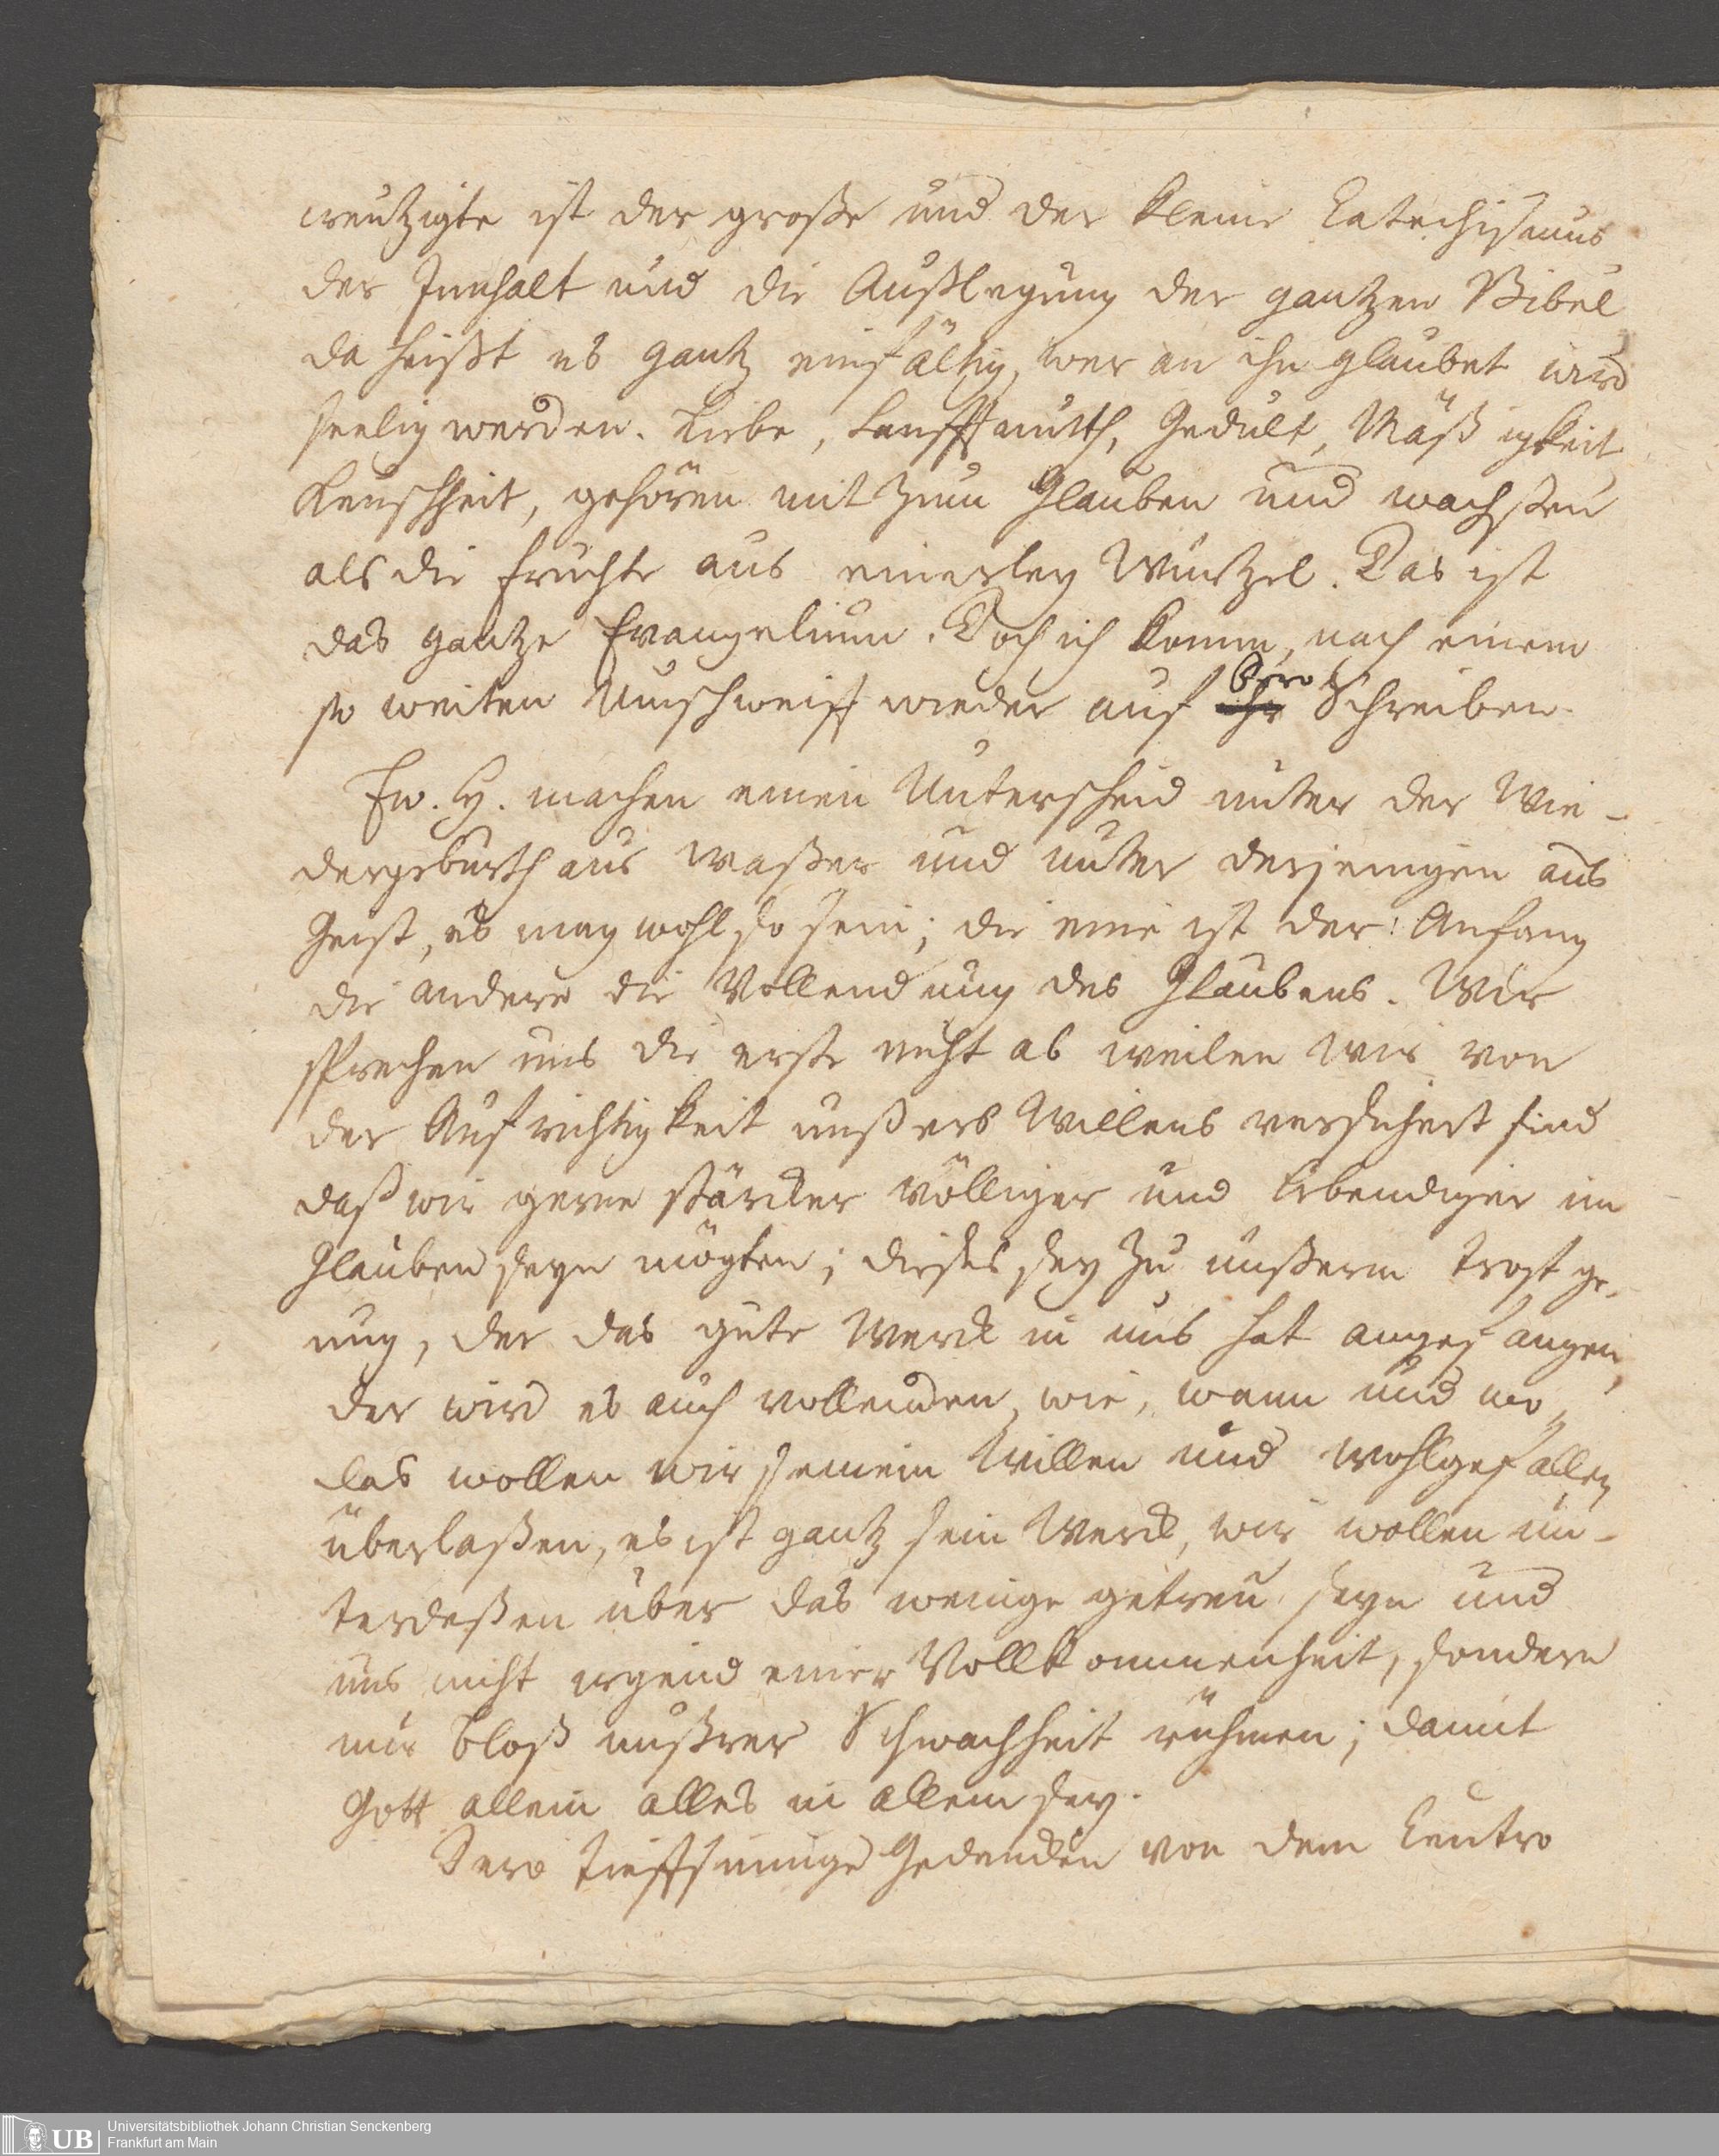 creutzigte ist der große und der kleine Catechismus
der Innhalt und die Außlegung der gantzen Bibel
da heißt es gantz einfältig, wer an ihn glaubet wird
seelig werden. Liebe, Sanfftmuth, Gedult, Mäßigkeit
Keuschheit, gehören mit zum Glauben und wachßen
als die Früchte aus einerley Wurtzel. Das ist
das gantze Evangelium. Doch ich komm, nach einem
so weiten Umschweiff wieder auf ihr Dero Schreiben.
Ew. H. machen einen Unterscheid unter der Wie-
dergeburth aus Waßer und unter derjenigen aus
Geist, es mag wohl so sein; die eine ist der Anfang
die andere die Vollendung des Glaubens. Wir
sprechen uns die erste nicht ab weilen wir von
der Aufrichtigkeit unßers Willens versichert sind
daß wir gerne stärcker völliger und lebendiger im
Glauben seyn mögten; dießes sey zu unßerm Trost ge-
nug, der das gute Werck in uns hat angefangen,
der wird es auch vollenden, wie, wann und wo,
das wollen wir seinem Willen und Wohlgefallen
überlaßen, es ist gantz sein Werck, wir wollen un-
terdeßen über das wenige getreu seyn und
uns nicht irgend einer Vollkommenheit, sondern
nur bloß unßrer Schwachheit rühmen; damit
Gott allein alles in allem sey.
Dero tieffsinnige Gedencken von dem Centro
Universitätsbibliothek Johann Christian Senckenberg
UB Frankfurt am Main